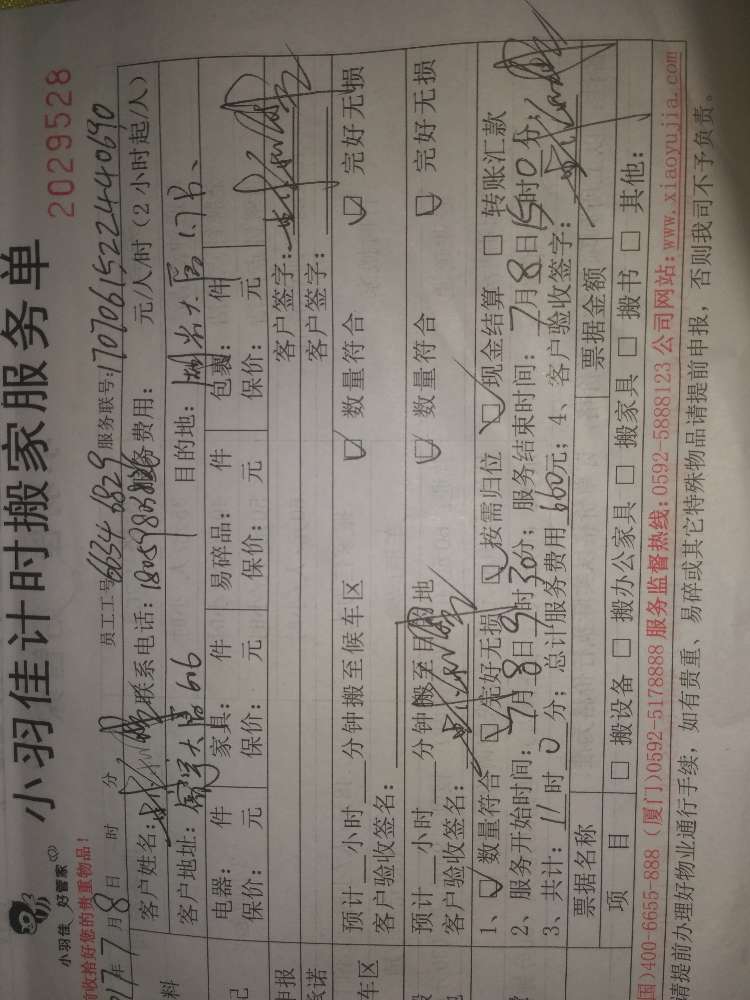 小羽佳 好管家
小羽佳计时搬家服务单
2029528
前收拾好您的贵重物品!
17年7月8日 时 分 员工工号: 6634 6829 服务联号: 17070615224440690
客户姓名: 联系电话: 服务费用: 元/人/时（2小时起/人）
料 客户地址: 大厦616 目的地: 大厦
电器: 件 家具: 件 易碎品: 件 包裹: 件
记 保价: 元 保价: 元 保价: 元 保价: 元
申报 客户签字:
承诺 客户签字:
预计 小时 分钟搬至候车区 ☑ 数量符合 ☑ 完好无损
车区 客户验收签名:
预计 小时 分钟搬至目的地 ☑ 数量符合 ☑ 完好无损
客户验收签名:
1、☑ 数量符合 ☑ 完好无损 ☑ 按需归位 ☑ 现金结算 □ 转账汇款
2、服务开始时间: 7月8日9时30分; 服务结束时间: 7月8日15时0分;
3、共计: 11时0分; 总计服务费用660元; 4、客户验收签字:
票据名称 票据金额
项 目 □ 搬设备 □ 搬办公家具 □ 搬家具 □ 搬书 □ 其他:
国)400-6655-888 (厦门)0592-5178888 服务监督热线: 0592-5888123 公司网站: www.xiaoyujia.com
请提前办理好物业通行手续，如有贵重、易碎或其它特殊物品请提前申报，否则我司不予负责。